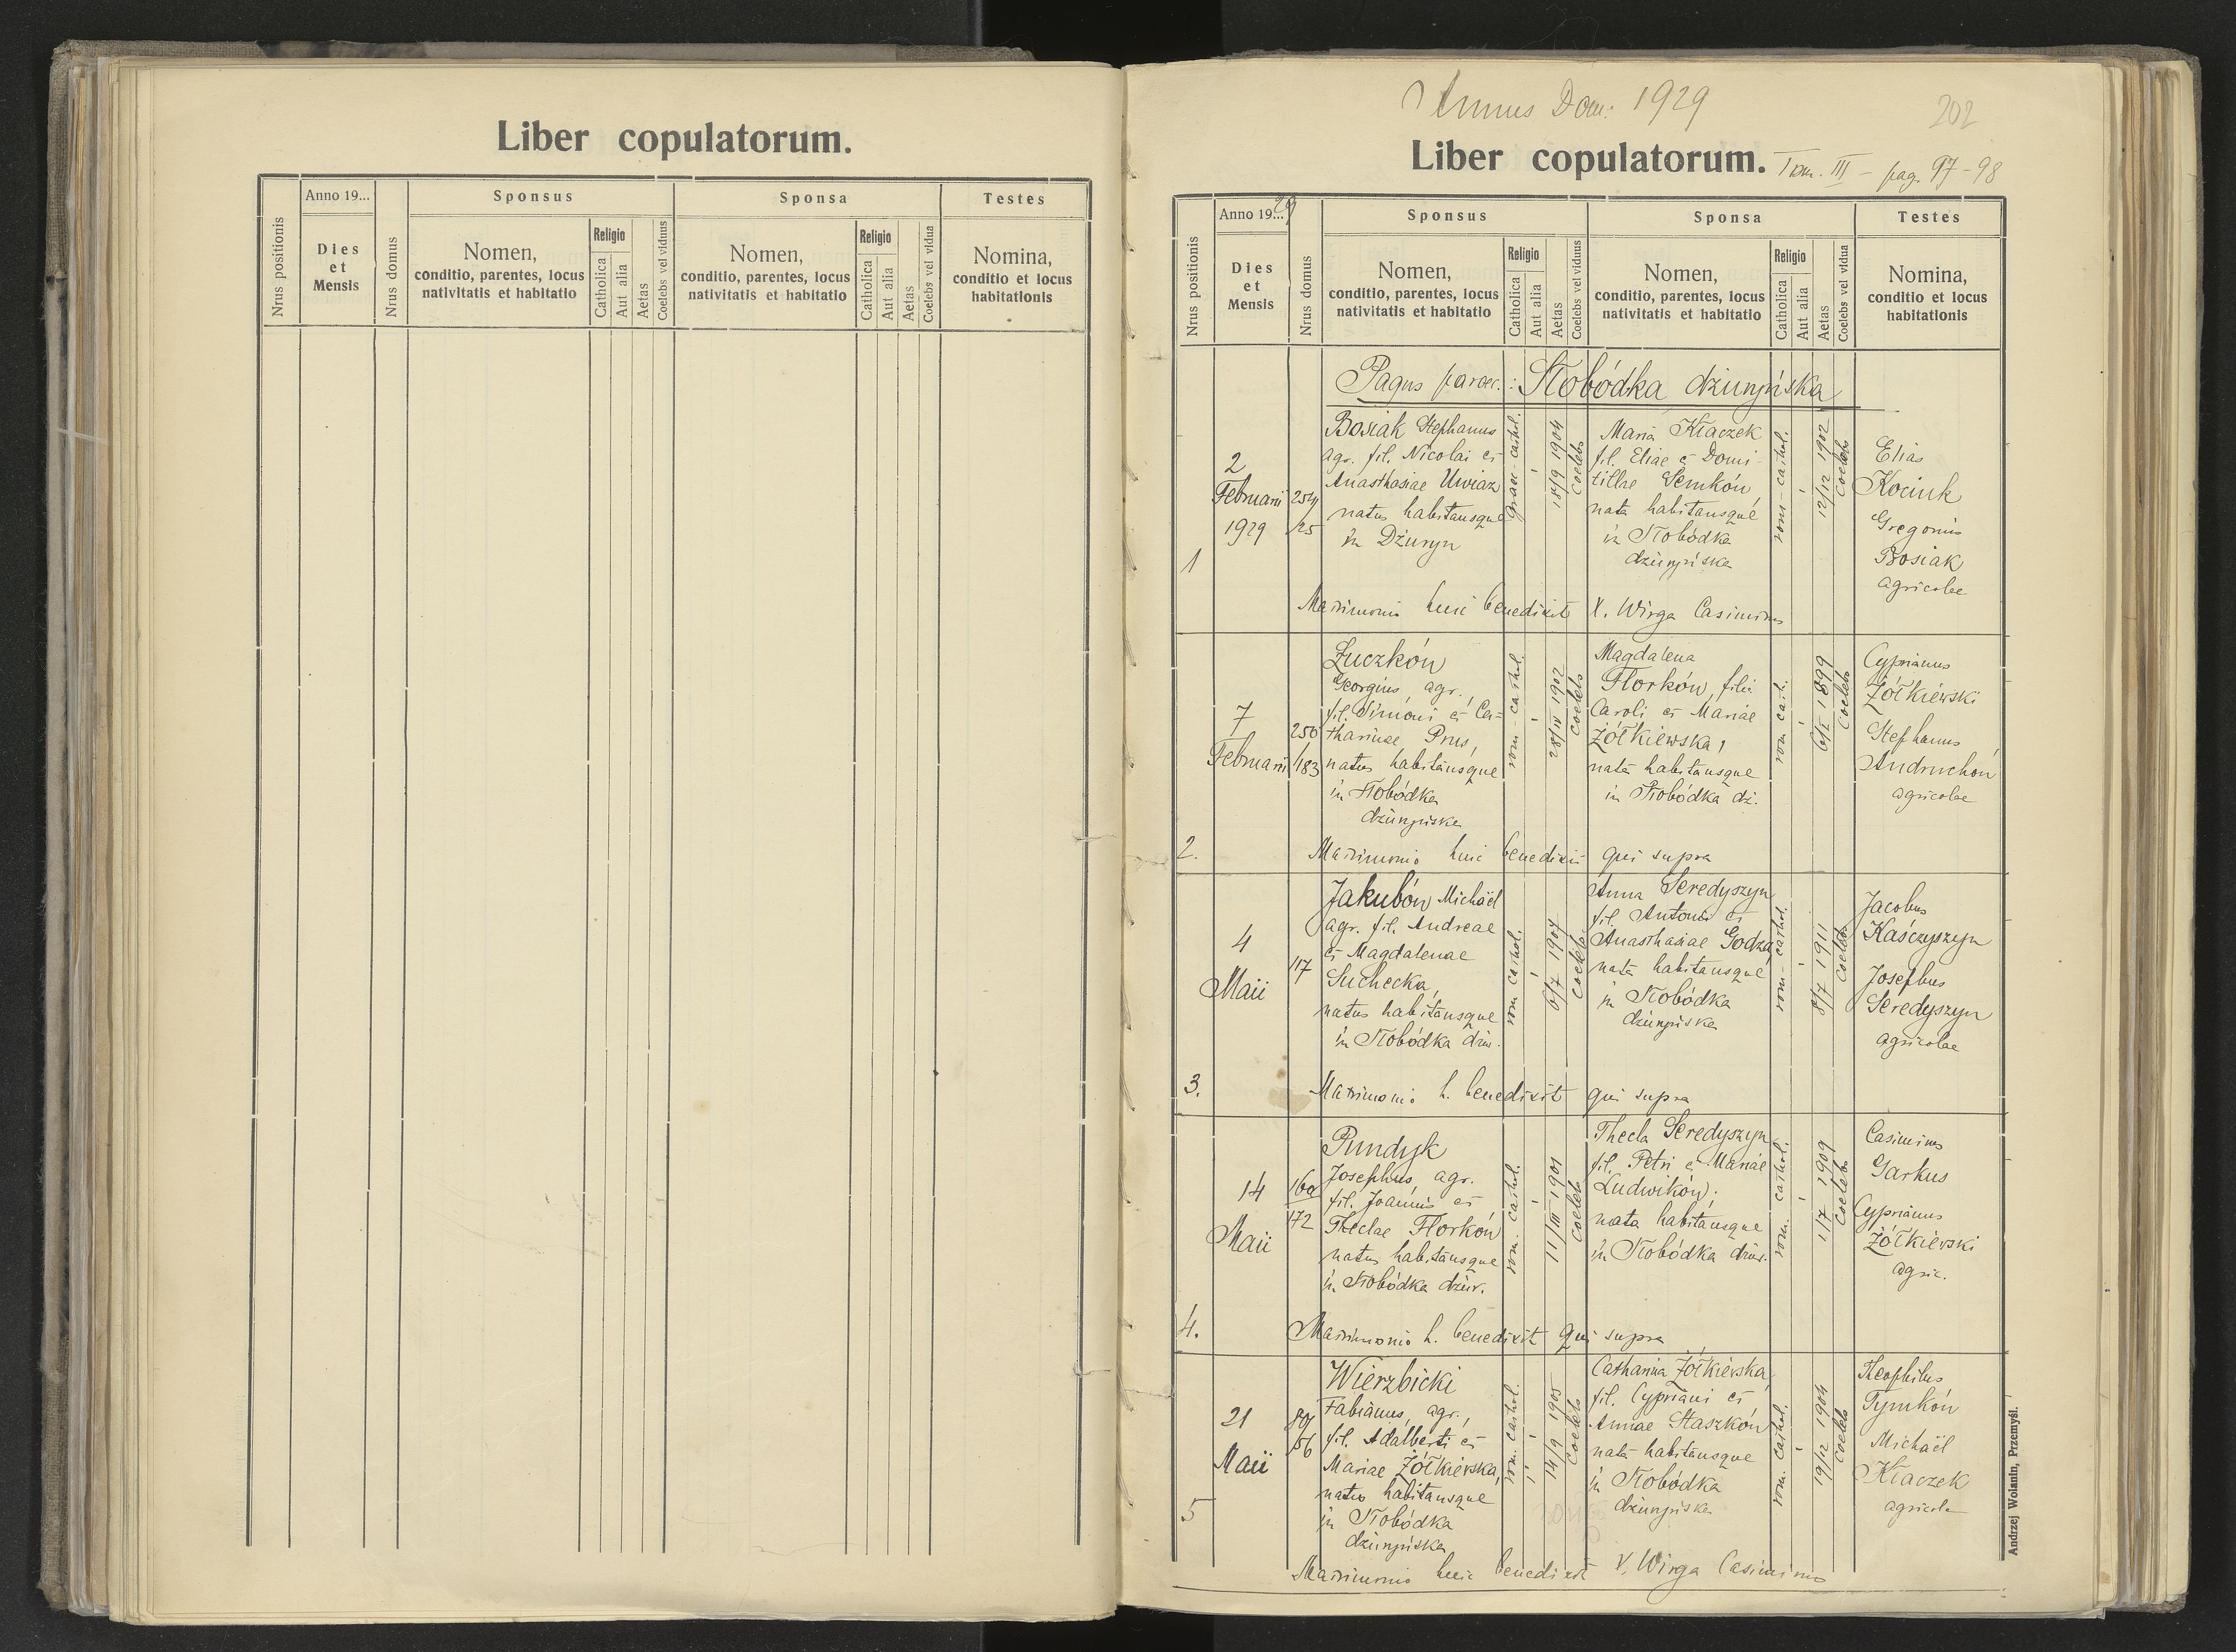 Liber copulatorum.
Nrus positionis
Anno 19...
Dies
et
Mensis
Nrus domus
Sponsus
Nomen,
conditio, parentes, locus
nativitatis et habitatio
Religio
Catholica
Aut alia
Aetas
Coelebs vel viduus
Sponsa
Nomen,
conditio, parentes, locus
nativitatis et habitatio
Religio
Catholica
Aut alia
Aetas
Coelebs vel vidua
Testes
Nomina,
conditio et locus
habitationis
Annus Dom: 1929
202
Liber copulatorum.
Tom. III - pag. 97-98
Nrus positionis
Anno 19...29
Dies
et
Mensis
Nrus domus
Sponsus
Nomen,
conditio, parentes, locus
nativitatis et habitatio
Religio
Catholica
Aut alia
Aetas
Coelebs vel viduus
Sponsa
Nomen,
conditio, parentes, locus
nativitatis et habitatio
Religio
Catholica
Aut alia
Aetas
Coelebs vel vidua
Testes
Nomina,
conditio et locus
habitationis
Pagus paroec.: Słobódka dżuryńska
1
2
Februarii
1929
254
/25
Bosiak Stephanus
agr. fil. Nicolai et
Anasthasiae Uwiaz
natus habitansque
in Dżuryn
graec-cathol.
18/9 1904
coelebs
Maria Kłaczek
fil. Eliae et Domi-
tillae Semków
nata habitansque
in Słobódka
dżuryńska
rom-cathol.
12/12 1902
coelebs
Elias
Kociuk
Gregorius
Bosiak
agricolae
Matrimonio huic benedixit X. Wirga Casimirus
2.
7
Februarii
250
/183
Łuczków
Georgius, agr.,
fil. Simoni et Ca-
tharinae Prus,
natus habitansque
in Słobódka
dżuryńska
rom-cathol.
28/IV 1902
coelebs
Magdalena
Florków, filia
Caroli et Mariae
Żółkiewska,
nata habitansque
in Słobódka dż.
rom cath.
1899
coelebs
Cyprianus
Żółkiewski
Stephanus
Andruchów
agricolae
Matrimonio huic benedixit qui supra
3.
4
Maii
117
Jakubów Michaël
agr. fil. Andreae
et Magdalenae
Suchecka,
natus habitansque
in Słobódka dżur.
rom cathol.
6/7 1904
coelebs
Anna Seredyszyn
fil. Antonii et
Anasthasiae Godza,
nata habitansque
in Słobódka
dżuryńska
rom-cathol.
8/7 1911
coelebs
Jacobus
Kaśczyszyn
Josephus
Seredyszyn
agricolae
Matrimonio h. benedixit qui supra
4.
14
Maii
160
172
Pundyk
Josephus, agr.
fil. Joannis et
Theclae Florków
natus habitansque
in Słobódka dżur.
rom. cathol.
11/III 1901
coelebs
Thecla Seredyszyn
fil. Petri et Mariae
Ludwików;
nata habitansque
in Słobódka dżur.
rom. cathol.
1/7 1909
coelebs
Casimirus
Garkus
Cyprianus
Żółkiewski
agric.
Matrimonio h. benedixit qui supra
5
21
Maii
56
Wierzbicki
Fabianus, agr.,
fil. Adalberti et
Mariae Żółkiewska,
natus habitansque
in Słobódka
dżuryńska
rom. cathol.
14/9 1905
coelebs
Catharina Żółkiewska,
fil. Cypriani et
Annae Staszków
nata habitansque
in Słobódka
dżuryńska
rom. cathol.
19/12 1904
coelebs
Theophilus
Tymków
Michaël
Kłaczek
agricolae
Matrimonio huic benedixit X. Wirga Casimirus
Andrzej Wolanin, Przemyśl.